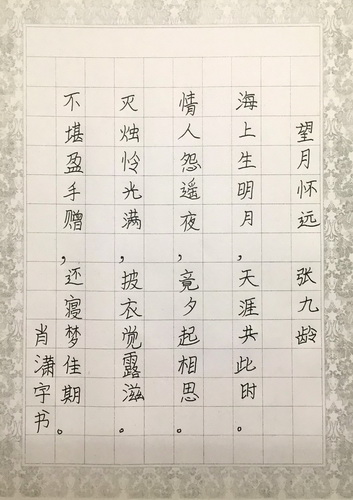 望月怀远 张九龄
海上生明月,天涯共此时。
情人怨遥夜,竟夕起相思。
灭烛怜光满,披衣觉露滋。
不堪盈手赠,还寝梦佳期。
肖潇字书